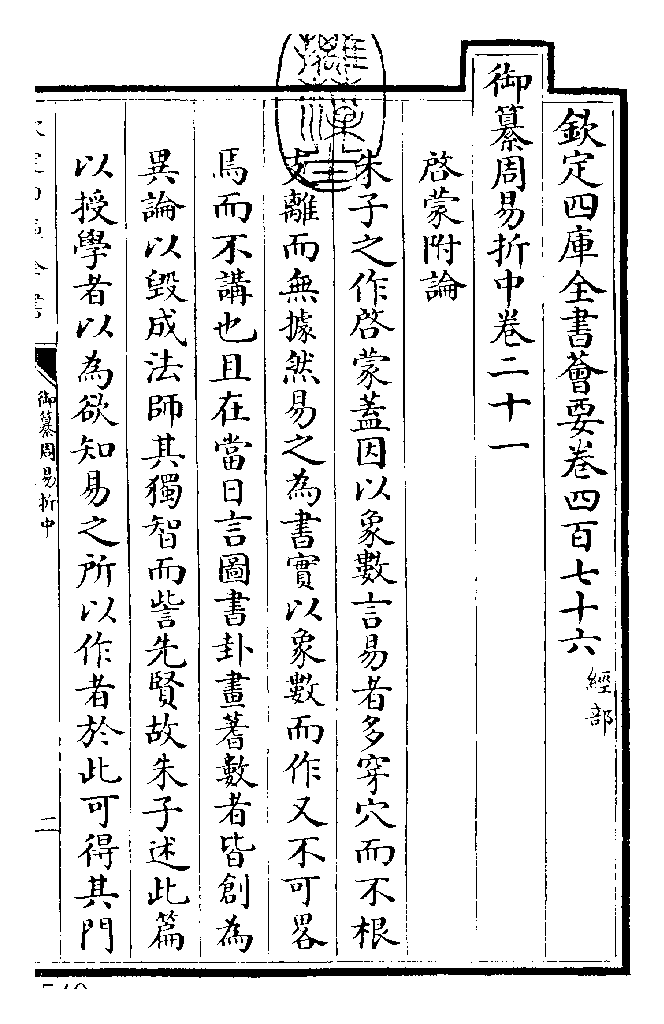 欽定四庫全書薈要卷四百七十六 經部
御纂周易折中卷二十一
啓蒙附論
朱子之作啓蒙蓋因以象數言易者多穿穴而不根
支離而無據然易之為書實以象數而作又不可畧
焉而不講也且在當日言圖書卦畫蓍數者皆創為
異論以毀成法師其獨智而訾先賢故朱子述此篇
以授學者以為欲知易之所以作者於此可得其門
御纂周易折中
二